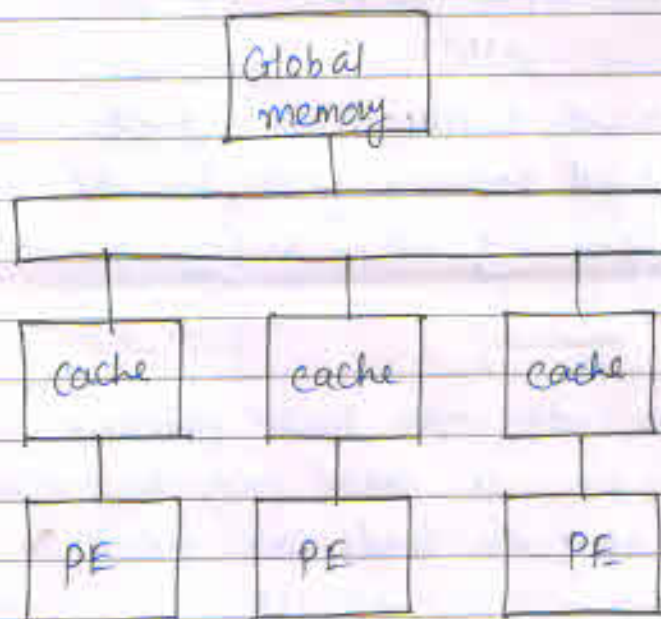 Global
memory
cache cache cache
PE PE PE